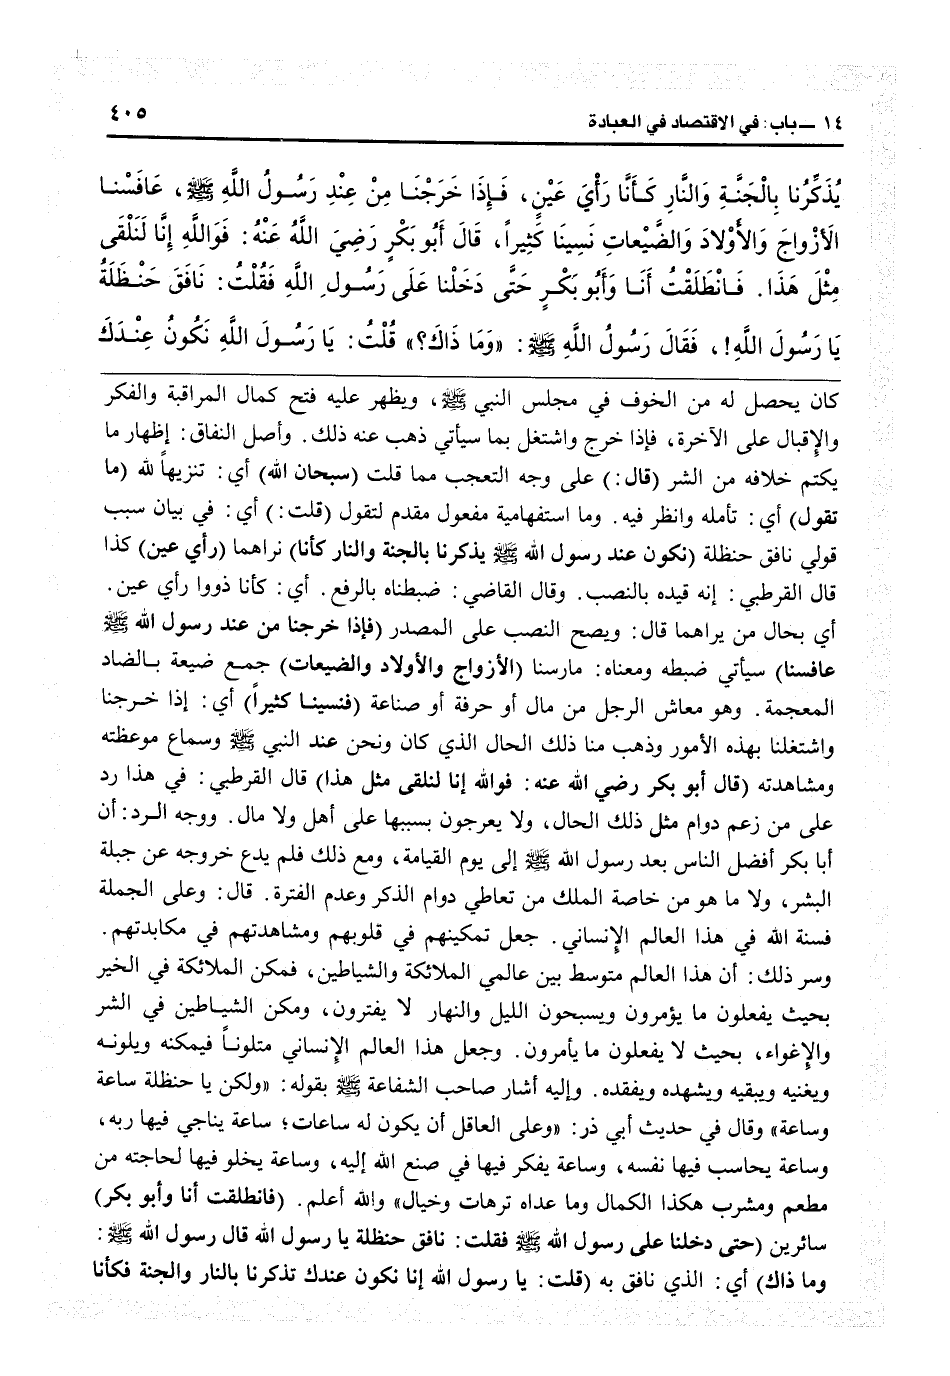 ١٤ ــ باب: في الاقتصاد في العبادة
٤٠٥
يُذَكِّرُنا بِالْجَنَّةِ وَالنَّارِ كَأَنَّا رَأْيَ عَيْنٍ، فَإِذَا خَرَجْنَا مِنْ عِنْدِ رَسُولِ اللَّهِ ﷺ، عَافَسْنا
الأَزْواجَ وَالأَوْلادَ وَالضَّيْعاتِ نَسِينَا كَثِيراً، قَالَ أَبُو بَكْرٍ رَضِيَ اللَّهُ عَنْهُ: فَوَاللَّهِ إِنَّا لَنَلْقَى
مِثْلَ هَذَا. فَانْطَلَقْتُ أَنَا وَأَبُو بَكْرٍ حَتَّى دَخَلْنا عَلَى رَسُولِ اللَّهِ فَقُلْتُ: نَافَقَ حَنْظَلَةُ
يَا رَسُولَ اللَّهِ!، فَقَالَ رَسُولُ اللَّهِ ﷺ: «وَمَا ذَاكَ؟» قُلْتُ: يَا رَسُولَ اللَّهِ نَكُونُ عِنْدَكَ
كان يحصل له من الخوف في مجلس النبي ﷺ، ويظهر عليه فتح كمال المراقبة والفكر
والإقبال على الآخرة، فإذا خرج واشتغل بما سيأتي ذهب عنه ذلك. وأصل النفاق: إظهار ما
يكتم خلافه من الشر (قال:) على وجه التعجب مما قلت (سبحان الله) أي: تنزيهاً لله (ما
تقول) أي: تأمله وانظر فيه. وما استفهامية مفعول مقدم لتقول (قلت:) أي: في بيان سبب
قولي نافق حنظلة (نكون عند رسول الله ﷺ يذكرنا بالجنة والنار كأنا) نراهما (رأي عين) كذا
قال القرطبي: إنه قيده بالنصب. وقال القاضي: ضبطناه بالرفع. أي: كأنا ذووا رأي عين.
أي بحال من يراهما قال: ويصح النصب على المصدر (فإذا خرجنا من عند رسول الله ﷺ
عافسنا) سيأتي ضبطه ومعناه: مارسنا (الأزواج والأولاد والضيعات) جمع ضيعة بالضاد
المعجمة. وهو معاش الرجل من مال أو حرفة أو صناعة (فنسينا كثيراً) أي: إذا خرجنا
واشتغلنا بهذه الأمور وذهب منا ذلك الحال الذي كان ونحن عند النبي ﷺ وسماع موعظته
ومشاهدته (قال أبو بكر رضي الله عنه: فوالله إنا لنلقى مثل هذا) قال القرطبي: في هذا رد
على من زعم دوام مثل ذلك الحال، ولا يعرجون بسببها على أهل ولا مال. ووجه الرد: أن
أبا بكر أفضل الناس بعد رسول الله ﷺ إلى يوم القيامة، ومع ذلك فلم يدع خروجه عن جبلة
البشر، ولا ما هو من خاصة الملك من تعاطي دوام الذكر وعدم الفترة. قال: وعلى الجملة
فسنة الله في هذا العالم الإنساني. جعل تمكينهم في قلوبهم ومشاهدتهم في مكابدتهم.
وسر ذلك: أن هذا العالم متوسط بين عالمي الملائكة والشياطين، فمكن الملائكة في الخير
بحيث يفعلون ما يؤمرون ويسبحون الليل والنهار لا يفترون، ومكن الشياطين في الشر
والإغواء، بحيث لا يفعلون ما يأمرون. وجعل هذا العالم الإنساني متلوناً فيمكنه ويلونه
ويغنيه ويبقيه ويشهده ويفقده. وإليه أشار صاحب الشفاعة ﷺ بقوله: «ولكن يا حنظلة ساعة
وساعة» وقال في حديث أبي ذر: «وعلى العاقل أن يكون له ساعات؛ ساعة يناجي فيها ربه،
وساعة يحاسب فيها نفسه، وساعة يفكر فيها في صنع الله إليه، وساعة يخلو فيها لحاجته من
مطعم ومشرب هكذا الكمال وما عداه ترهات وخيال» والله أعلم. (فانطلقت أنا وأبو بكر)
سائرين (حتى دخلنا على رسول الله ﷺ فقلت: نافق حنظلة يا رسول الله قال رسول الله ﷺ:
وما ذاك) أي: الذي نافق به (قلت: يا رسول الله إنا نكون عندك تذكرنا بالنار والجنة فكأنا